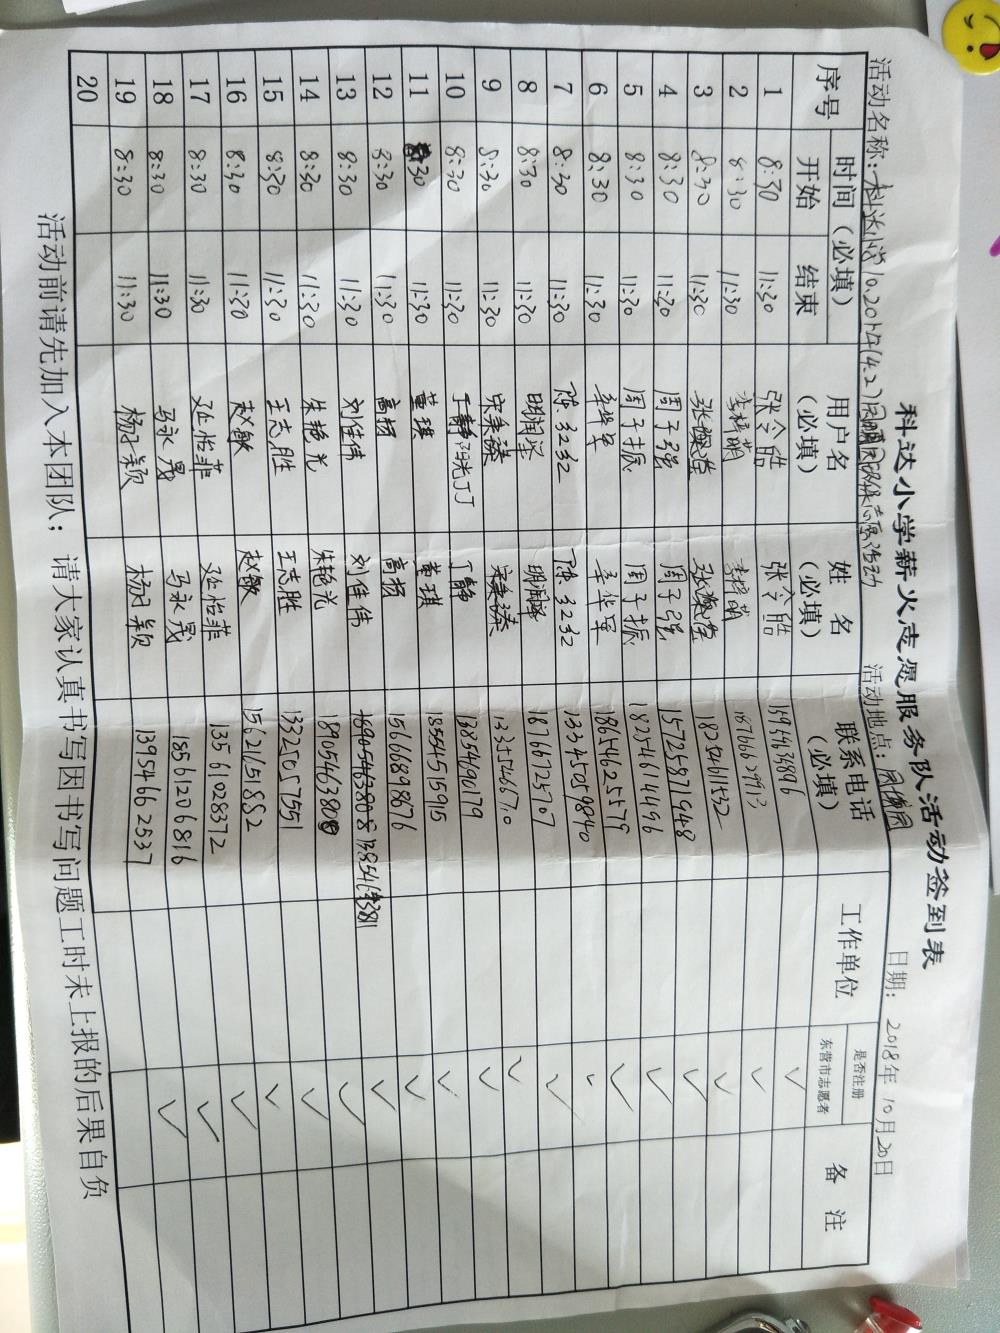 科达小学薪火志愿服务队活动签到表
活动名称：科达小学10.20 2014(4.2) 活动
活动地点：
日期：2018年10月20日
序号 时间（必填） 用户名（必填） 姓名（必填） 联系电话（必填） 工作单位 是否注册东营市志愿者 备注
开始 结束
1 8:30 11:30 张令皓 张令皓 15954634896 ✓
2 8:30 11:30 李梓萌 李梓萌 18766629913 ✓
3 8:30 11:30 18254611532 ✓
4 8:30 11:30 周子强 周子强 15725871948 ✓
5 8:30 11:30 周子振 周子振 18254614496 ✓
6 8:30 11:30 辛华军 辛华军 18654625579 ✓
7 8:30 11:30 陈红红 陈红红 13345059840 ✓
8 8:30 11:30 明润泽 明润泽 18766725707 ✓
9 8:30 11:30 宋秉臻 宋秉臻 13355466710 ✓
10 8:30 11:30 丁静 阳光丁丁 丁静 13854690179 ✓
11 8:30 11:30 董琪 董琪 18554515915 ✓
12 8:30 11:30 高扬 高扬 15666898676 ✓
13 8:30 11:30 刘佳伟 刘佳伟 ✓
14 8:30 11:30 朱艳光 朱艳光 18905463808 ✓
15 8:30 11:30 王志胜 王志胜 13325057551 ✓
16 8:30 11:30 赵敏 赵敏 15621615882 ✓
17 8:30 11:30 延怡菲 延怡菲 13561028372 ✓
18 8:30 11:30 马永晟 马永晟 18561206816 ✓
19 8:30 11:30 杨子颖 杨子颖 13954662537
20
活动前请先加入本团队；请大家认真书写因书写问题工时未上报的后果自负